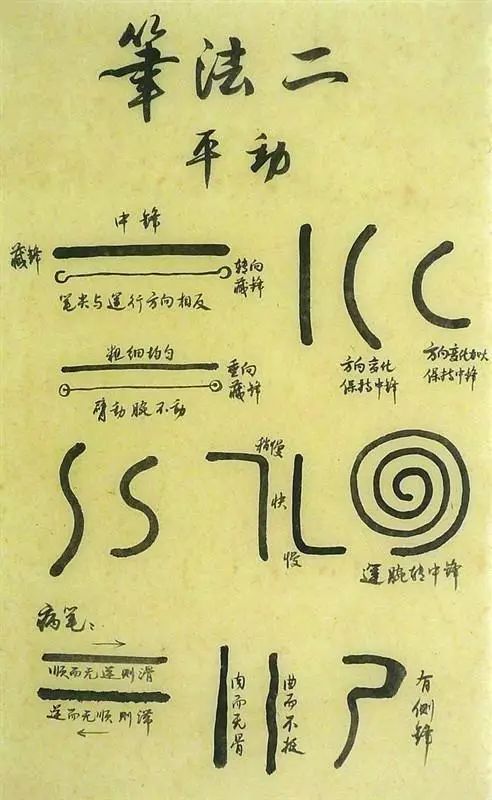 筆法二
平動
中鋒
藏鋒
转向
藏鋒
笔尖与运行方向相反
粗细均匀
垂向
藏鋒
臂动腕不动
方向变化
保持中锋
方向变化加大
保持中锋
稍慢
快
慢
运腕转中锋
病笔：
顺而无逆则滑
逆而无顺则滞
肉而无骨
曲而不挺
有侧锋